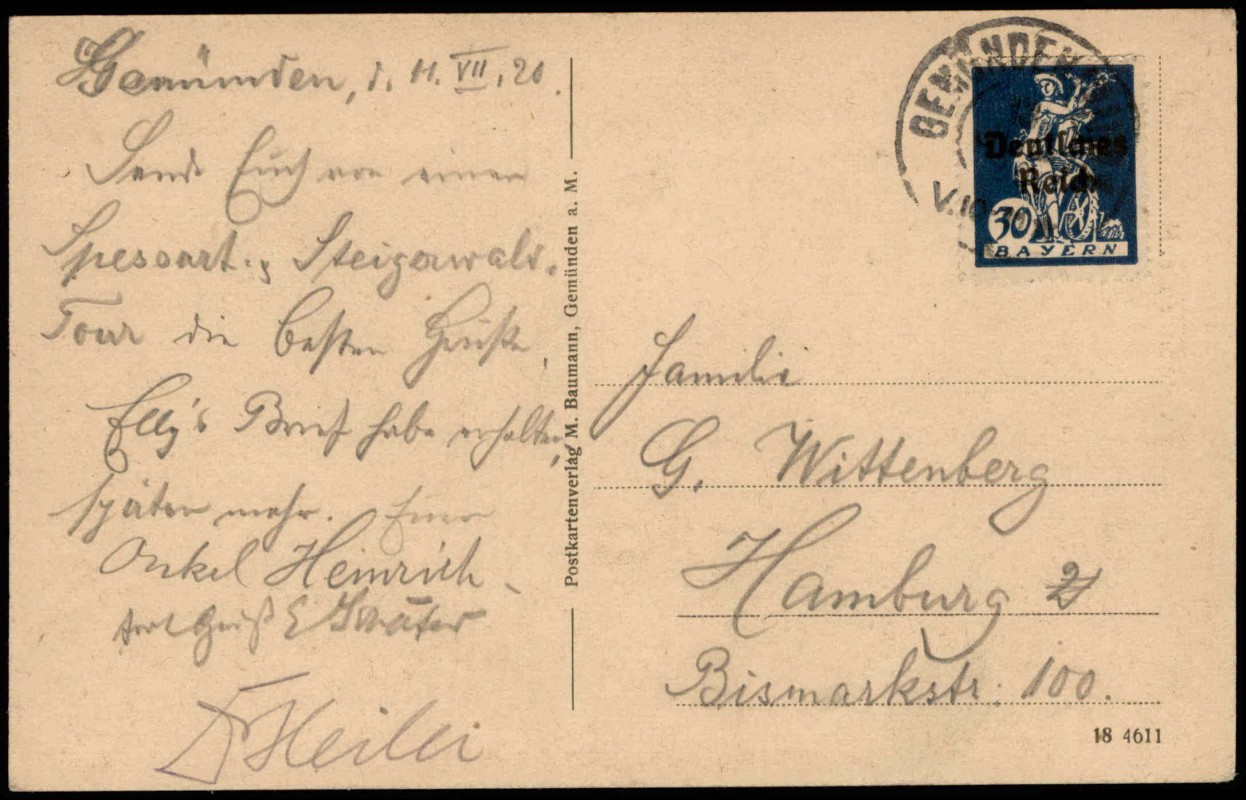 Gemünden, d. 11. VII. 20.
Sende Euch von einer
Spessart-, Steigerwald-
Tour die besten Grüße.
Elly's Brief habe erhalten,
später mehr. Euer
Onkel Heinrich
Gruß E
Postkartenverlag M. Baumann, Gemünden a. M.
GEMÜNDEN
V.10
Deutsches
Reich
30
BAYERN
Familie
G. Wittenberg
Hamburg
Bismarkstr. 100.
18 4611